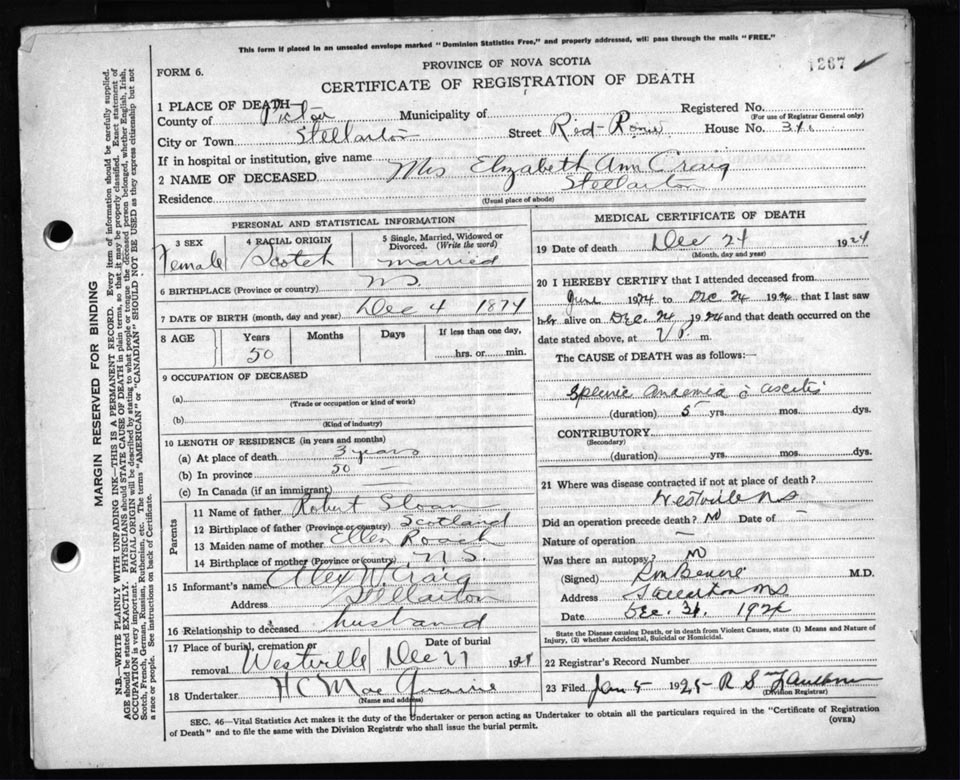 This form if placed in an unsealed envelope marked "Dominion Statistics Free," and properly addressed, will pass through the mails "FREE."
FORM 6.
PROVINCE OF NOVA SCOTIA
1267
CERTIFICATE OF REGISTRATION OF DEATH
1 PLACE OF DEATH—
County of Pictou Municipality of Registered No.
(For use of Registrar General only)
City or Town Stellarton Street Red-Row House No. 34
If in hospital or institution, give name
2 NAME OF DECEASED Mrs Elizabeth Ann Craig
Residence Stellarton
(Usual place of abode)
PERSONAL AND STATISTICAL INFORMATION
3 SEX Female
4 RACIAL ORIGIN Scotch
5 Single, Married, Widowed or Divorced. (Write the word) married
6 BIRTHPLACE (Province or country) N S.
7 DATE OF BIRTH (month, day and year) Dec 4 1874
8 AGE Years Months Days If less than one day,
50 hrs. or min.
9 OCCUPATION OF DECEASED
(a)
(Trade or occupation or kind of work)
(b)
(Kind of industry)
10 LENGTH OF RESIDENCE (in years and months)
(a) At place of death 3 years
(b) In province 50 —
(c) In Canada (if an immigrant)
Parents
11 Name of father Robert Sloan
12 Birthplace of father (Province or country) Scotland
13 Maiden name of mother Ellen Roach
14 Birthplace of mother (Province or country) N S.
15 Informant's name Alex W. Craig
Address Stellarton
16 Relationship to deceased husband
17 Place of burial, cremation or removal Westville Date of burial Dec 27 1924
18 Undertaker H C Mac Quarrie
(Name and address)
MEDICAL CERTIFICATE OF DEATH
19 Date of death Dec 24 1924
(Month, day and year)
20 I HEREBY CERTIFY that I attended deceased from
June 1924 to Dec 24 1924 that I last saw
her alive on Dec. 24 1924 and that death occurred on the
date stated above, at P. m.
The CAUSE of DEATH was as follows:—
Splenic Anaemia c̄ ascitis
(duration) 5 yrs. mos. dys.
CONTRIBUTORY
(Secondary)
(duration) yrs. mos. dys.
21 Where was disease contracted if not at place of death?
Westville N S
Did an operation precede death? No Date of —
Nature of operation —
Was there an autopsy? No
(Signed) M.D.
Address Stellarton NS
Date Dec. 31. 1924
State the Disease causing Death, or in death from Violent Causes, state (1) Means and Nature of
Injury, (2) whether Accidental, Suicidal or Homicidal.
22 Registrar's Record Number
23 Filed Jan 5 1925 R S
(Division Registrar)
SEC. 46—Vital Statistics Act makes it the duty of the Undertaker or person acting as Undertaker to obtain all the particulars required in the "Certificate of Registration
of Death" and to file the same with the Division Registrar who shall issue the burial permit.
(OVER)
MARGIN RESERVED FOR BINDING
N.B.—WRITE PLAINLY WITH UNFADING INK—THIS IS A PERMANENT RECORD. Every item of information should be carefully supplied.
AGE should be stated EXACTLY. PHYSICIANS should STATE CAUSE OF DEATH in plain terms, so that it may be properly classified. Exact statement of
OCCUPATION is very important. RACIAL ORIGIN will be described by stating to what people or tongue the deceased person belonged, whether English, Irish,
Scotch, French, German, Russian, Ruthenian, etc. The terms "AMERICAN" or "CANADIAN" SHOULD NOT BE USED as they express citizenship but not
a race or people. See instructions on back of Certificate.